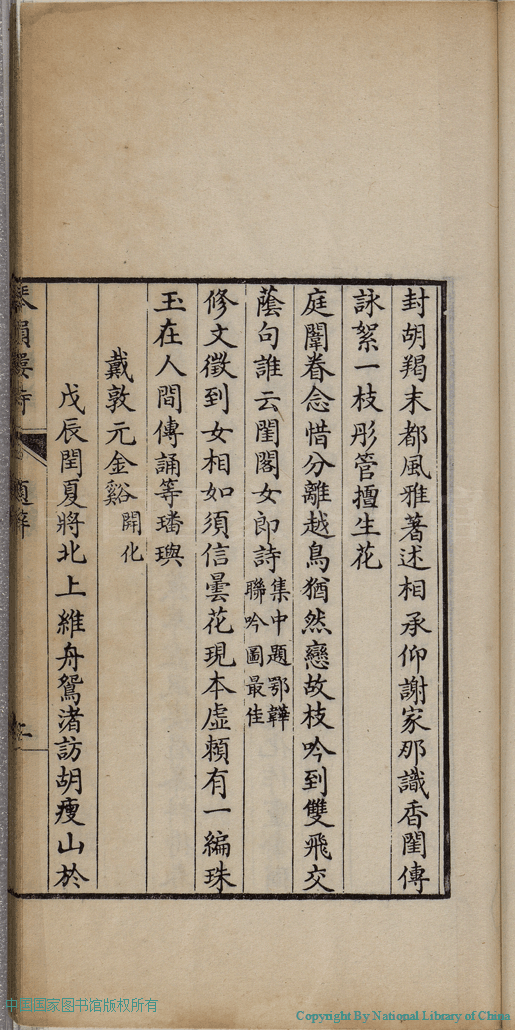 封胡羯末都風雅著述相承仰謝家那識香閨傳
詠絮一枝彤管擅生花
庭闈眷念惜分離越鳥猶然戀故枝吟到雙飛交
蔭句誰云閨閣女郎詩集中題鄂韡
聯吟圖最佳
修文徵到女相如須信曇花現本虛賴有一編珠
玉在人間傳誦等璠璵
戴敦元金谿開化
戊辰閏夏將北上維舟鴛渚訪胡瘦山於
題辭
中国国家图书馆版权所有
Copyright By National Library of China